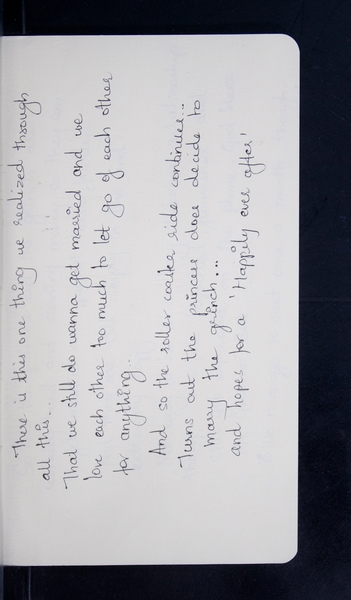 There is this one thing we realized through
all this...
That we still do wanna get married and we
love each other too much to let go of each other
for anything..
And so the roller coaster ride continues...
Turns out the princess does decide to
marry the grinch...
and hopes for a 'Happily ever after'